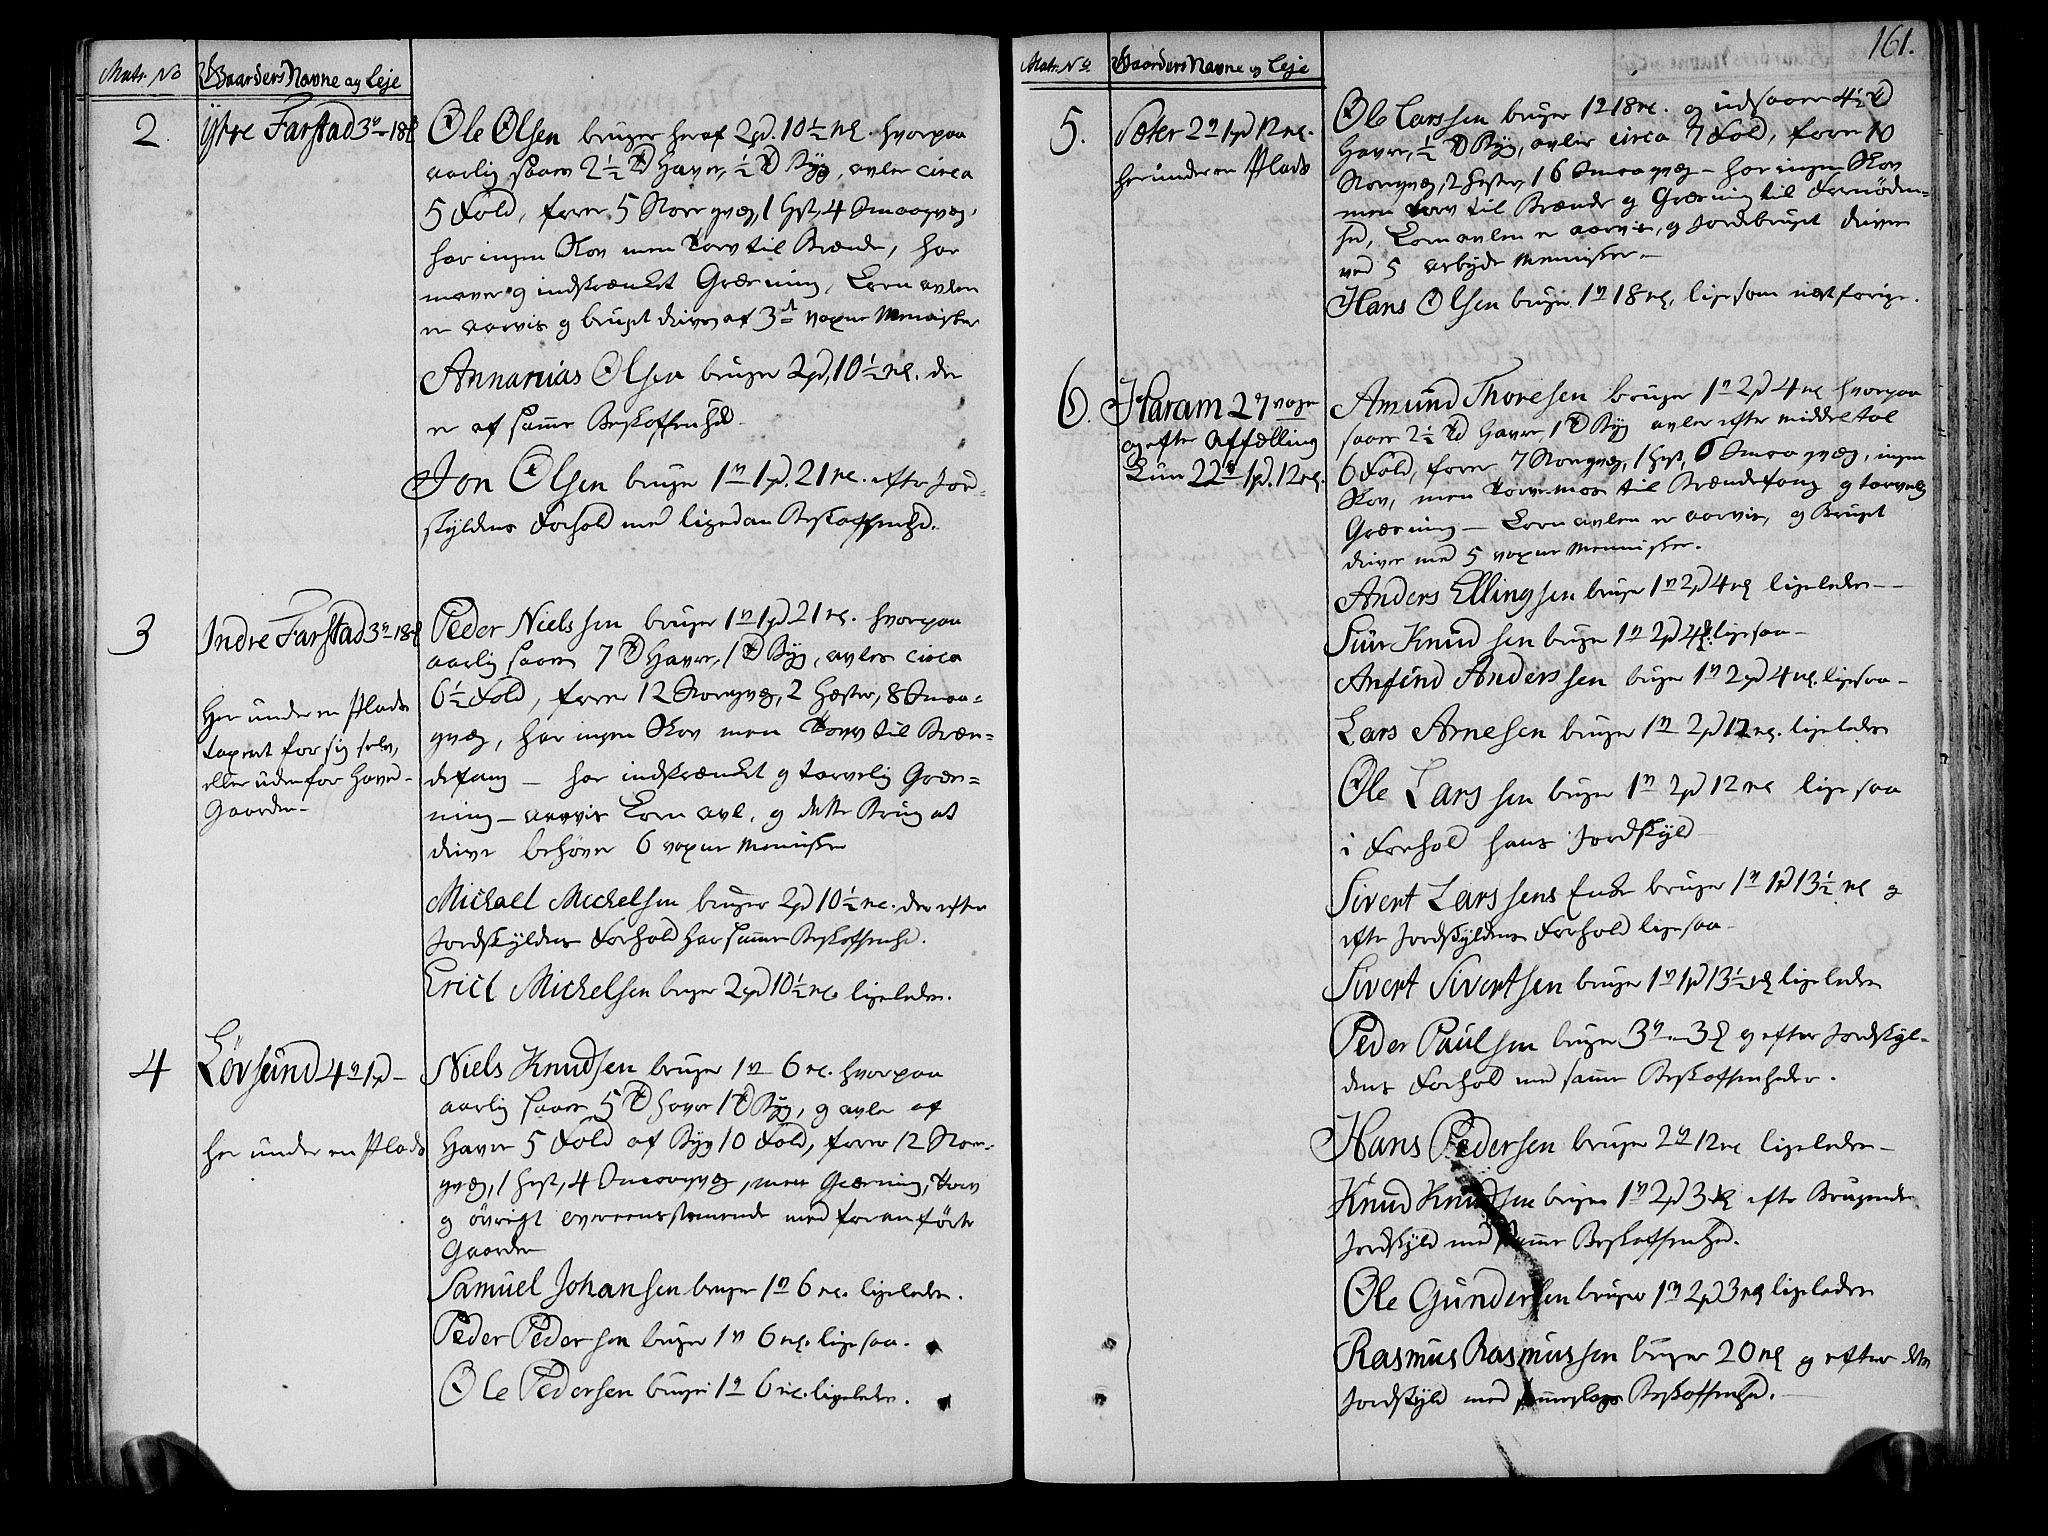 Matr. No Gaarders Navne og Leje
2. Ytre Farstad 3v - 18 mk
Ole Olsen bruger heraf 2pd. 10½ mk. hvorpaa
aarlig saaes 2½ Td Havre, ½ Td Byg, avler circa
5 Fold, föder 5 Storqvæg, 1 Hest, 4 Smaaqvæg,
har ingen Skov men Torv til Brænde, har
maver og indskrænket Græsning, Korn avlen
er aarvis og bruget drives af 3de voxne Mennisker
Annanias Olsen bruger 2pd. 10½ mk. der
er af samme Beskaffenhed.
Jon Olsen bruger 1v 1pd. 21 mk. efter Jord-
skyldens Forhold med ligedan Beskaffenhed.
3 Indre Farstad 3v - 18 mk
Her under en Plads
taxert for sig selv,
eller udenfor Hoved-
Gaarden.
Peder Nielssen bruger 1v 1pd. 21 mk. hvorpaa
aarlig saaes 7 Td Havre, 1 Td Byg, avles circa
6½ Fold, föder 12 Storqvæg, 2 Hæster, 8 Smaa-
qvæg, har ingen Skov men Torv til Bræn-
defang - har indskrænket og tarvelig Græs-
ning - aarvis Korn avl, og dette Brug at
drive behöver 6 voxne Mennisker
Michael Mechelsen bruger 2pd 10½ mk. der efter
Jordskyldens Forhold har samme Beskaffenhed.
Erich Michelsen bruger 2pd 10½ mk. ligeledes.
4 Lövsund 4v 1pd -
her under en Plads
Niels Knudsen bruger 1v 6 mk. hvorpaa
aarlig saaes 5 Td Havre 1 Td Byg, og avler af
Havre 5 Fold af Byg 10 Fold, föder 12 Stor-
qvæg, 1 Hest, 4 Smaaqvæg, men Græsning, Torv
og övrigt overensstemmende med foranförte
Gaarder
Samuel Johansen bruger 1v 6 mk. ligeledes.
Peder Pedersen bruger 1v 6 mk. ligesaa.
Ole Pedersen bruger 1v 6 mk. ligeledes.
161.
Matr. No Gaarders Navne og Leje
5. Sæter 2v 1pd 12 mk.
herunder en Plads
Ole Larssen bruger 1v 18 mk. og udsaaer 4½ Td
Havre, ½ Td Byg, avler circa 7 Fold, föder 10
Storqvæg, 2 Hester, 16 Smaaqvæg - har ingen Skov
men Torv til Brænde og Græsning til Fornöden-
hed, Kornavlen er aarvis, og Jordebruget drives
ved 5 arbejds Mennisker.
Hans Olsen bruger 1v 18 mk. ligesom næstforige.
6. Haram 27 voger
og efter Affælling
Kun 22v 1pd. 12 mk.
Amund Thoresen bruger 1v 2pd 4 mk hvorpaa
saaes 2½ Td Havre, 1 Td Byg avler efter middeltal
6 Fold, föder 7 Storqvæg, 1 Hest, 6 Smaaqvæg, ingen
Skov, men Torvmose til Brændefang og tarvelig
Græsning - Korn avlen er aarvis, og Bruget
drives med 5 voxne Mennisker.
Anders Ellingsen bruger 1v 2pd 4 mk ligeledes -
Siur Knudsen bruger 1v 2pd 4 mk. ligesaa -
Anfind Anderssen bruger 1v 2pd 4 mk. ligesaa -
Lars Arnesen bruger 1v 2pd 12 mk. ligeledes
Ole Larssen bruger 1v 2pd 12 mk ligesaa
i Forhold hans Jordskyld
Sivert Larssens Enke bruger 1v 1pd 13½ mk og
efter Jordskyldens Forhold ligesaa.
Sivert Sivertsen bruger 1v 1pd 13½ mk ligeledes
Peder Paulsen bruger 3v - 3 mk og efter Jordskyl-
dens Forhold med samme Beskaffenheder.
Hans Pedersen bruger 2v 12 mk ligeledes -
Knud Knudsen bruger 1v 2pd 3 mk efter Brugende
Jordskyld med samme Beskaffenhed.
Ole Gundersen bruger 1v 2pd 3 mk ligeledes
Rasmus Rasmussen bruger 20 mk og efter den
Jordskyld med Beskaffenhed.